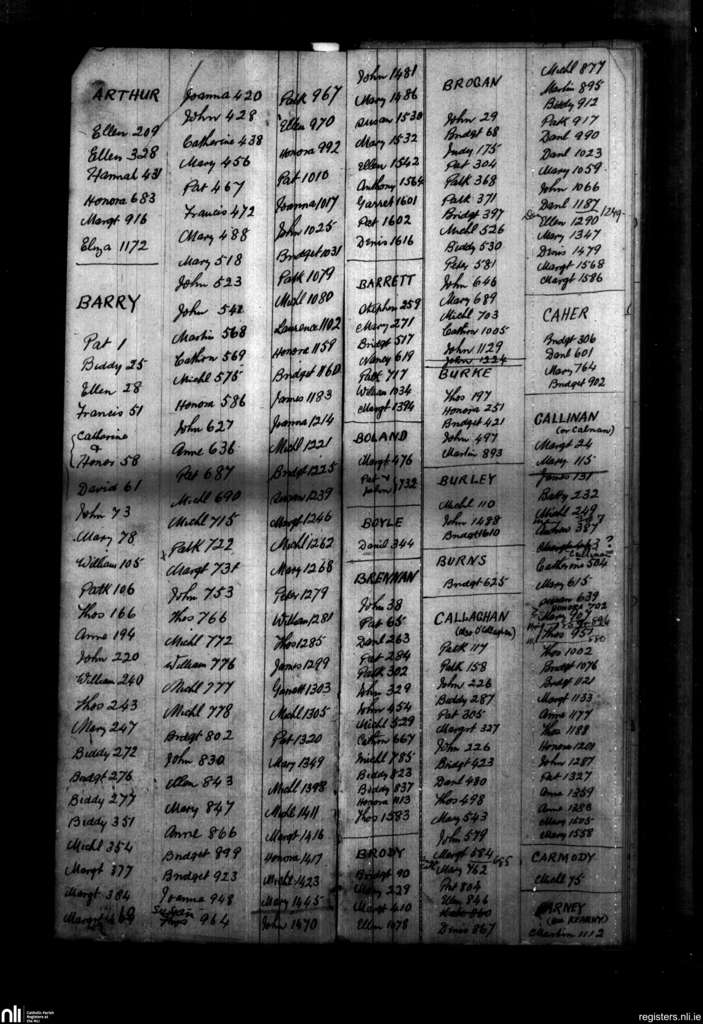 ARTHUR
Ellen 209
Ellen 328
Hannah 431
Honora 683
Margt 916
Eliza 1172
BARRY
Pat 1
Biddy 25
Ellen 28
Francis 51
Catherine
&
Honor 58
David 61
John 73
Mary 78
William 105
Patk 106
Thos 166
Anne 194
John 220
William 240
Thos 243
Mary 247
Biddy 272
Bridgt 276
Biddy 277
Biddy 351
Michl 354
Margt 377
Margt 384
Joanna 420
John 428
Catherine 438
Mary 456
Pat 467
Francis 472
Mary 488
Mary 518
John 523
John 542
Martin 568
Cathrn 569
Michl 575
Honora 586
John 627
Anne 636
Pat 687
Michl 690
Michl 715
Patk 722
Margt 734
John 753
Thos 766
Michl 772
William 776
Michl 777
Michl 778
Bridgt 802
John 830
Ellen 843
Mary 847
Anne 866
Bridget 899
Bridget 923
Joanna 948
Susan
964
Patk 967
Ellen 970
Honora 992
Pat 1010
Joanna 1017
John 1025
Bridget 1031
Patk 1079
Michl 1080
Laurence 1102
Honora 1159
Bridget 1160
James 1183
Joanna 1214
Michl 1221
Bridgt 1225
Susan 1239
Margt 1246
Michl 1262
Mary 1268
Peter 1279
William 1281
Thos 1285
James 1299
Garrett 1303
Michl 1305
Pat 1320
Mary 1349
Michl 1398
Michl 1411
Margt 1416
Honora 1417
Michl 1423
Mary 1445
John 1470
John 1481
Mary 1486
Susan 1530
Mary 1532
Ellen 1542
Anthony 1564
Garret 1601
Pat 1602
Denis 1616
BARRETT
Stephen 259
Mary 271
Bridgt 517
Nancy 619
Patk 717
William 1034
Margt 1394
BOLAND
Margt 476
Pat &
John 1732
BOYLE
Danil 344
BRENNAN
John 38
Pat 65
Danl 263
Pat 284
Patk 302
John 329
John 454
Michl 529
Cathrn 667
Michl 785
Biddy 823
Biddy 837
Honora 1113
Thos 1583
BRODY
Bridgt 90
Mary 229
Margt 610
Ellen 1078
BROGAN
John 29
Bridgt 68
Judy 175
Pat 304
Patk 368
Patk 371
Bridgt 397
Michl 526
Biddy 530
Peter 581
John 646
Mary 689
Michl 703
Cathrn 1005
John 1129
John 1224
BURKE
Thos 197
Honora 251
Bridget 421
John 497
Martin 893
BURLEY
Michl 110
John 1488
Bridgt 1610
BURNS
Bridgt 625
CALLAGHAN
(Also O'Callaghan)
Patk 117
Patk 158
John 226
Biddy 287
Pat 305
Margrt 327
John 226
Bridgt 423
Danl 480
Thos 498
Mary 543
John 579
Margt 684
695
Mary 762
Pat 804
Ellen 846
Denis 867
Michl 877
Martin 895
Biddy 912
Patk 917
Danl 990
Danl 1023
Mary 1059
John 1066
Danl 1187
1249
Ellen 1290
Mary 1347
Denis 1479
Margt 1568
Margt 1586
CAHER
Bridgt 306
Danl 601
Mary 764
Bridget 902
CALLINAN
(or Calnan)
Margt 24
Mary 115
James 131
Betty 232
Michl 249
387
Catherine 504
Mary 615
639
Honora 702
Thos 951
Thos 1002
Bridgt 1076
Bridgt 1121
Margt 1133
Anne 1177
Thos 1188
Honora 1201
John 1287
Pat 1327
Anne 1359
Anne 1383
Mary 1505
Mary 1558
CARMODY
Michl 75
CARNEY
(see KEARNY)
Martin 1112
nli
Catholic Parish
Registers at
the NLI
registers.nli.ie